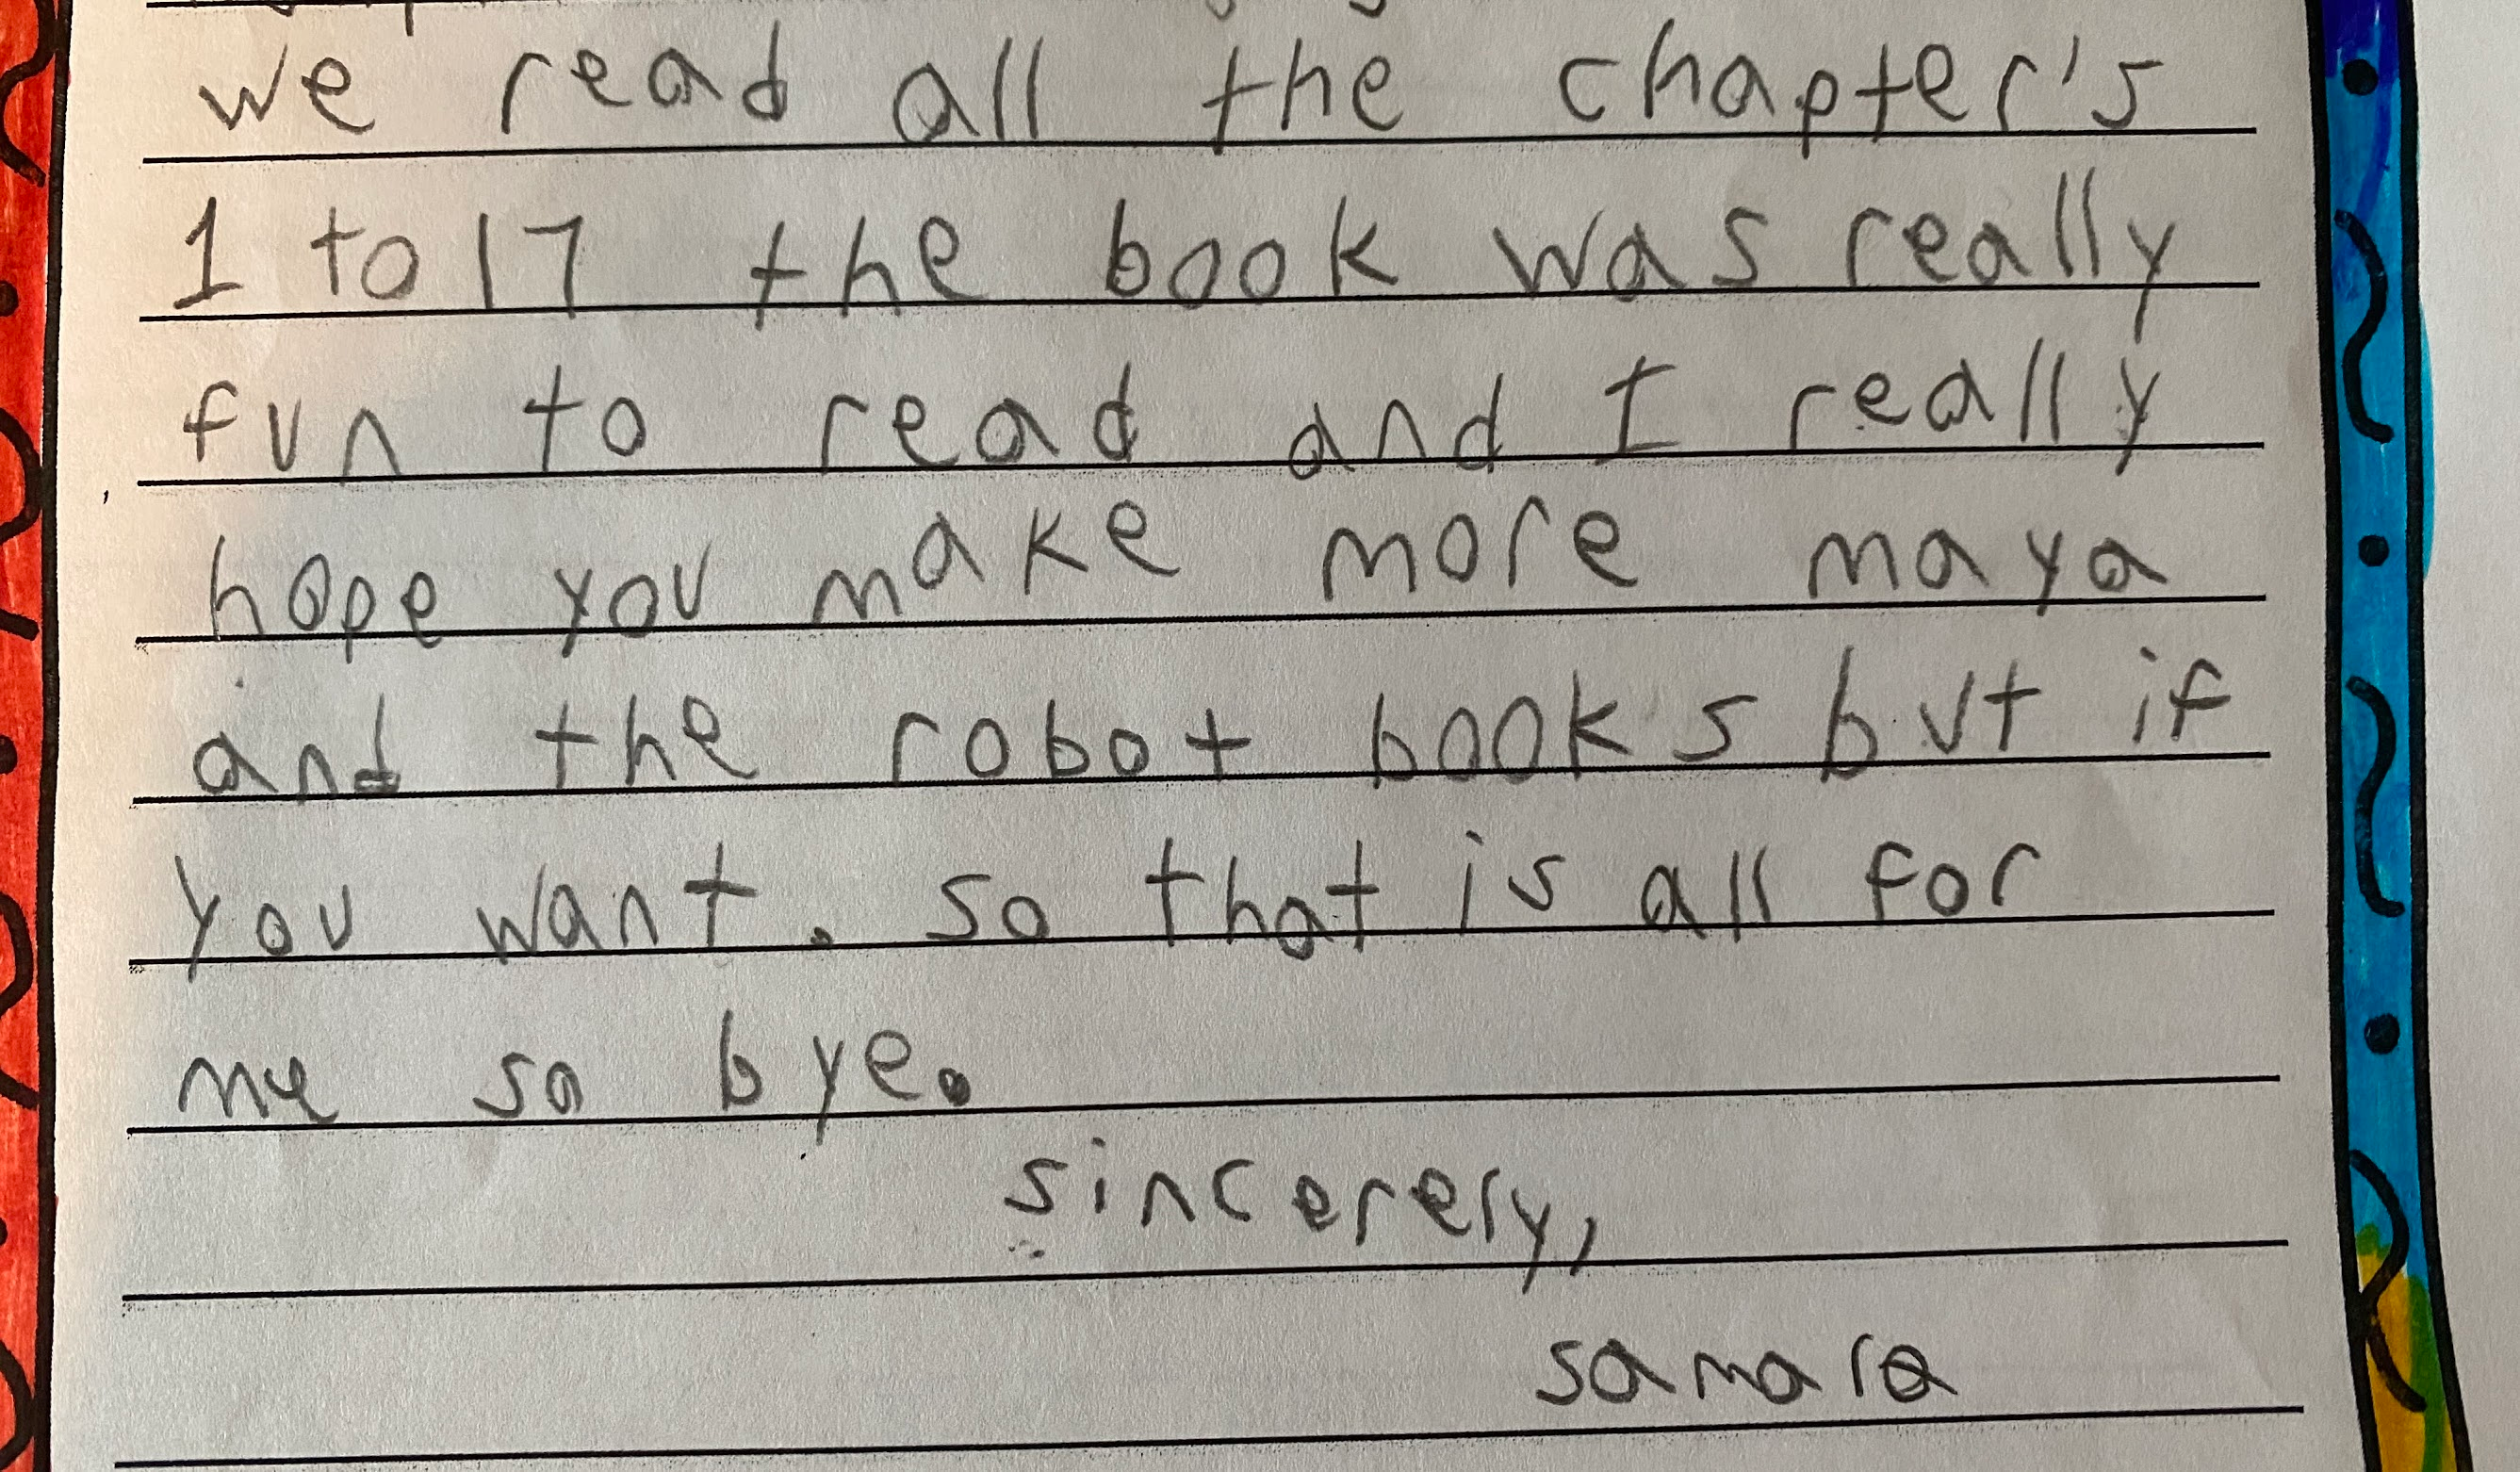 we read all the chapter's
1 to 17 the book was really
fun to read and I really
hope you make more maya
and the robot books but if
you want. so that is all for
me so bye.
sincerely,
samara